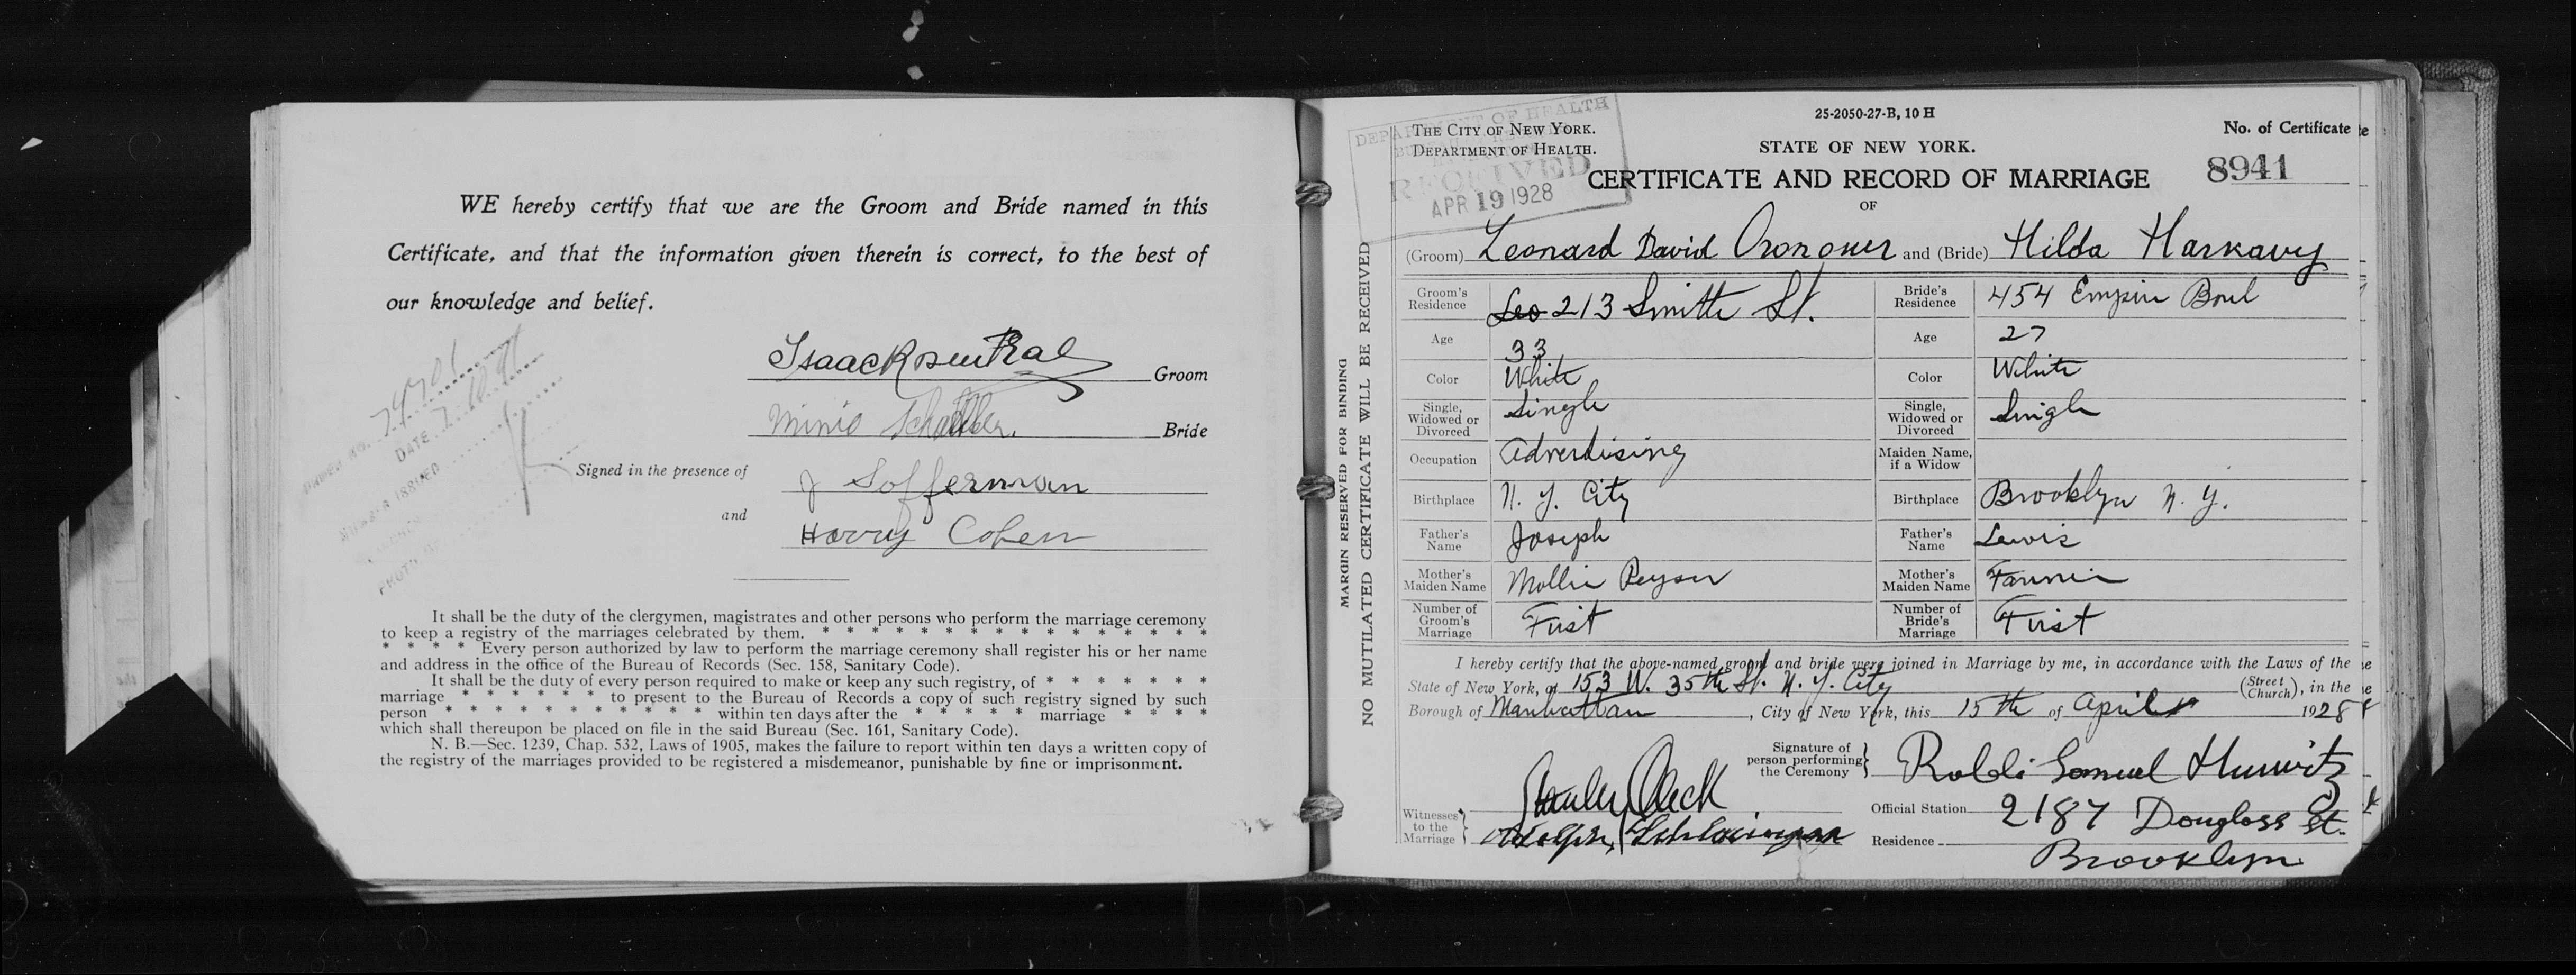 WE hereby certify that we are the Groom and Bride named in this
Certificate, and that the information given therein is correct, to the best of
our knowledge and belief.
Isaac Rosenthal Groom
Minie Bride
Signed in the presence of
J Sofferman
and
Harry Cohen
DATE
It shall be the duty of the clergymen, magistrates and other persons who perform the marriage ceremony
to keep a registry of the marriages celebrated by them. * * * * * * * * * * * * * * * *
* * * * Every person authorized by law to perform the marriage ceremony shall register his or her name
and address in the office of the Bureau of Records (Sec. 158, Sanitary Code).
It shall be the duty of every person required to make or keep any such registry, of * * * * * * *
marriage * * * * * * to present to the Bureau of Records a copy of such registry signed by such
person * * * * * * * * * * * within ten days after the * * * * * marriage * * * *
which shall thereupon be placed on file in the said Bureau (Sec. 161, Sanitary Code).
N. B.—Sec. 1239, Chap. 532, Laws of 1905, makes the failure to report within ten days a written copy of
the registry of the marriages provided to be registered a misdemeanor, punishable by fine or imprisonment.
MARGIN RESERVED FOR BINDING
NO MUTILATED CERTIFICATE WILL BE RECEIVED
DEPARTMENT OF HEALTH
RECEIVED
APR 19 1928
THE CITY OF NEW YORK.
DEPARTMENT OF HEALTH.
25-2050-27-B, 10 H
STATE OF NEW YORK.
CERTIFICATE AND RECORD OF MARRIAGE
OF
No. of Certificate
8941
(Groom) Leonard David Oronower and (Bride) Hilda Harkavy
Groom's Residence Leo 213 Smith St. Bride's Residence 454 Empire Boul
Age 33 Age 27
Color White Color White
Single, Widowed or Divorced Single Single, Widowed or Divorced Single
Occupation Advertising Maiden Name, if a Widow
Birthplace N. Y. City Birthplace Brooklyn N. Y.
Father's Name Joseph Father's Name Lewis
Mother's Maiden Name Mollie Peyser Mother's Maiden Name Fannie
Number of Groom's Marriage First Number of Bride's Marriage First
I hereby certify that the above-named groom and bride were joined in Marriage by me, in accordance with the Laws of the
State of New York, at 153 W. 35th St. N. Y. City (Street Church), in the
Borough of Manhattan, City of New York, this 15th of April 1928
Signature of person performing the Ceremony } Rabbi Samuel Hurwitz
Witnesses to the Marriage } Stanley
Adolph
Official Station 2187 Douglass St.
Residence Brooklyn